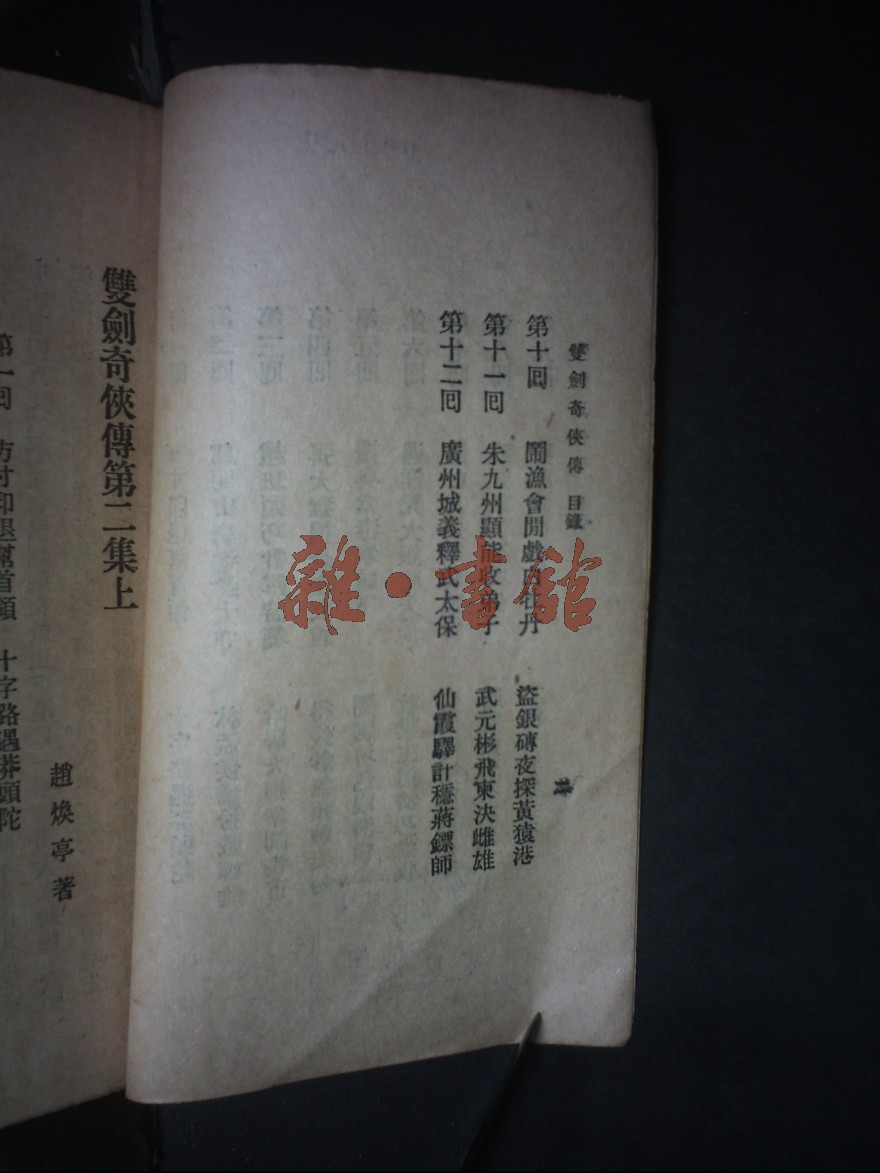 雙劍奇俠傳 目錄
第十回 鬧漁會閒戲白牡丹 盜銀磚夜探黃猿港
第十一回 朱九州顯能收弟子 武元彬飛柬決雌雄
第十二回 廣州城義釋武太保 仙霞驛計穩蔣鏢師
二
雜·書館
雙劍奇俠傳第二集上
趙煥亭著
第一回 方寸印退幫首領 十字路遇莽頭陀